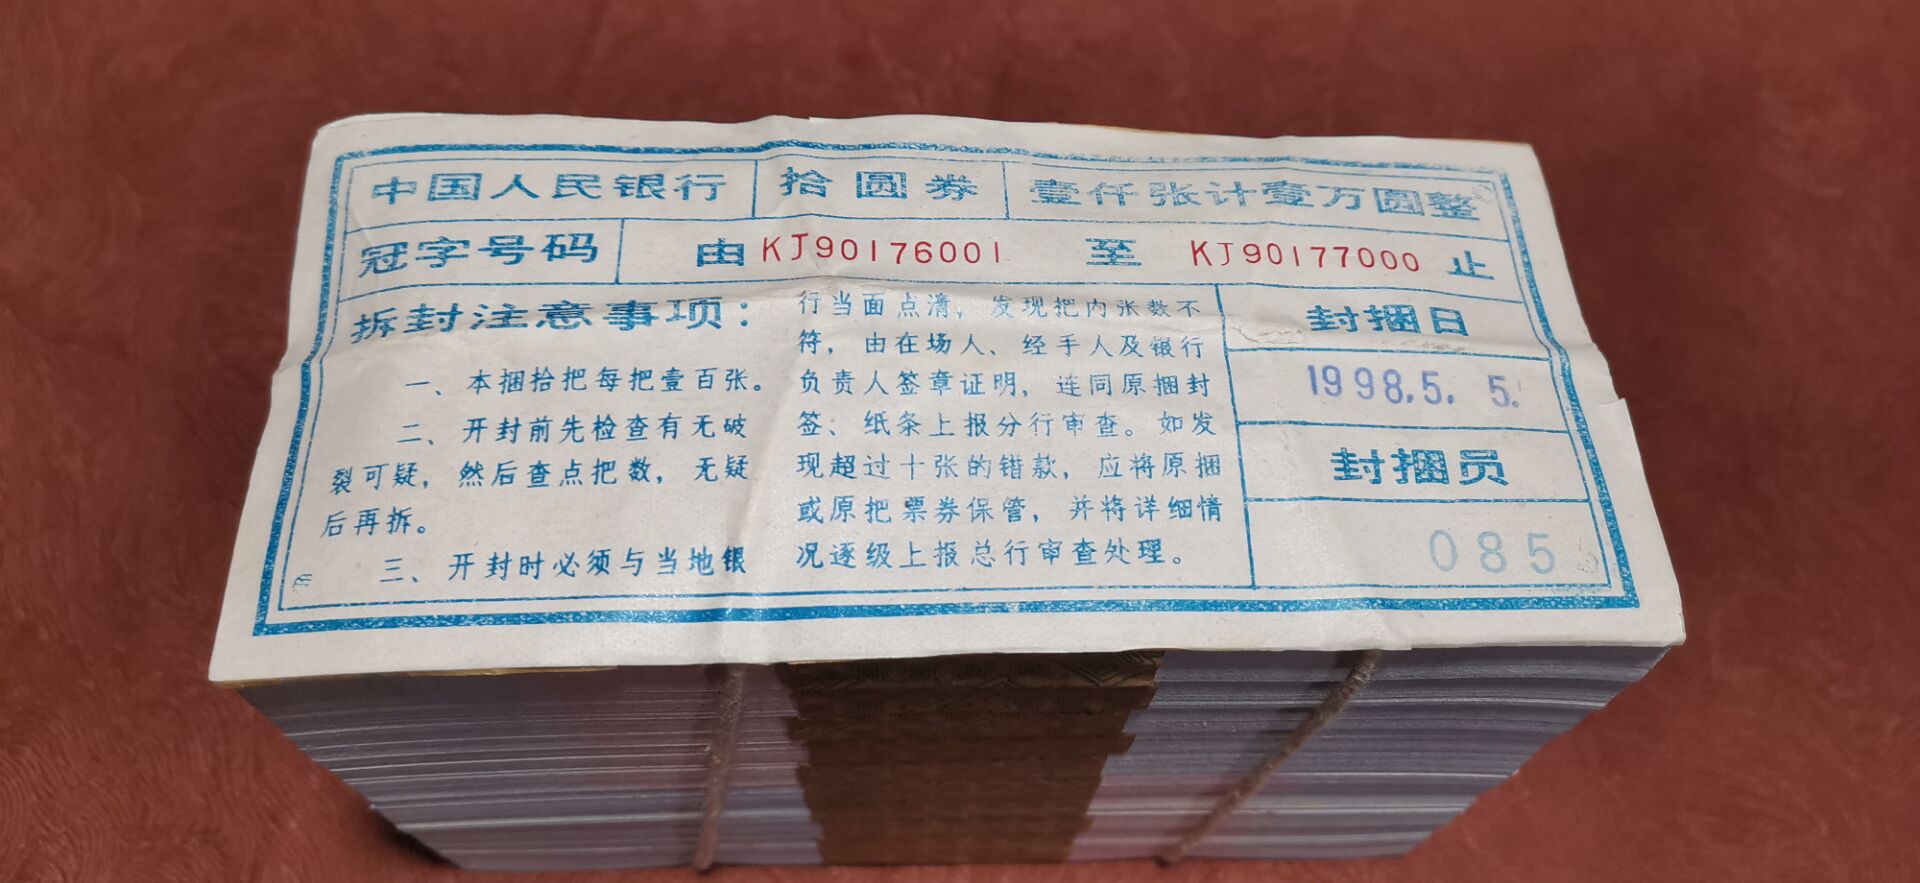 中国人民银行 拾圆券 壹仟张计壹万圆整
冠字号码 由 KJ90176001 至 KJ90177000 止
拆封注意事项：
一、本捆拾把每把壹百张。
二、开封前先检查有无破
裂可疑，然后查点把数，无疑
后再拆。
三、开封时必须与当地银
行当面点清，发现把内张数不
符，由在场人、经手人及银行
负责人签章证明，连同原捆封
签、纸条上报分行审查。如发
现超过十张的错款，应将原捆
或原把票券保管，并将详细情
况逐级上报总行审查处理。
封捆日
1998.5. 5.
封捆员
085